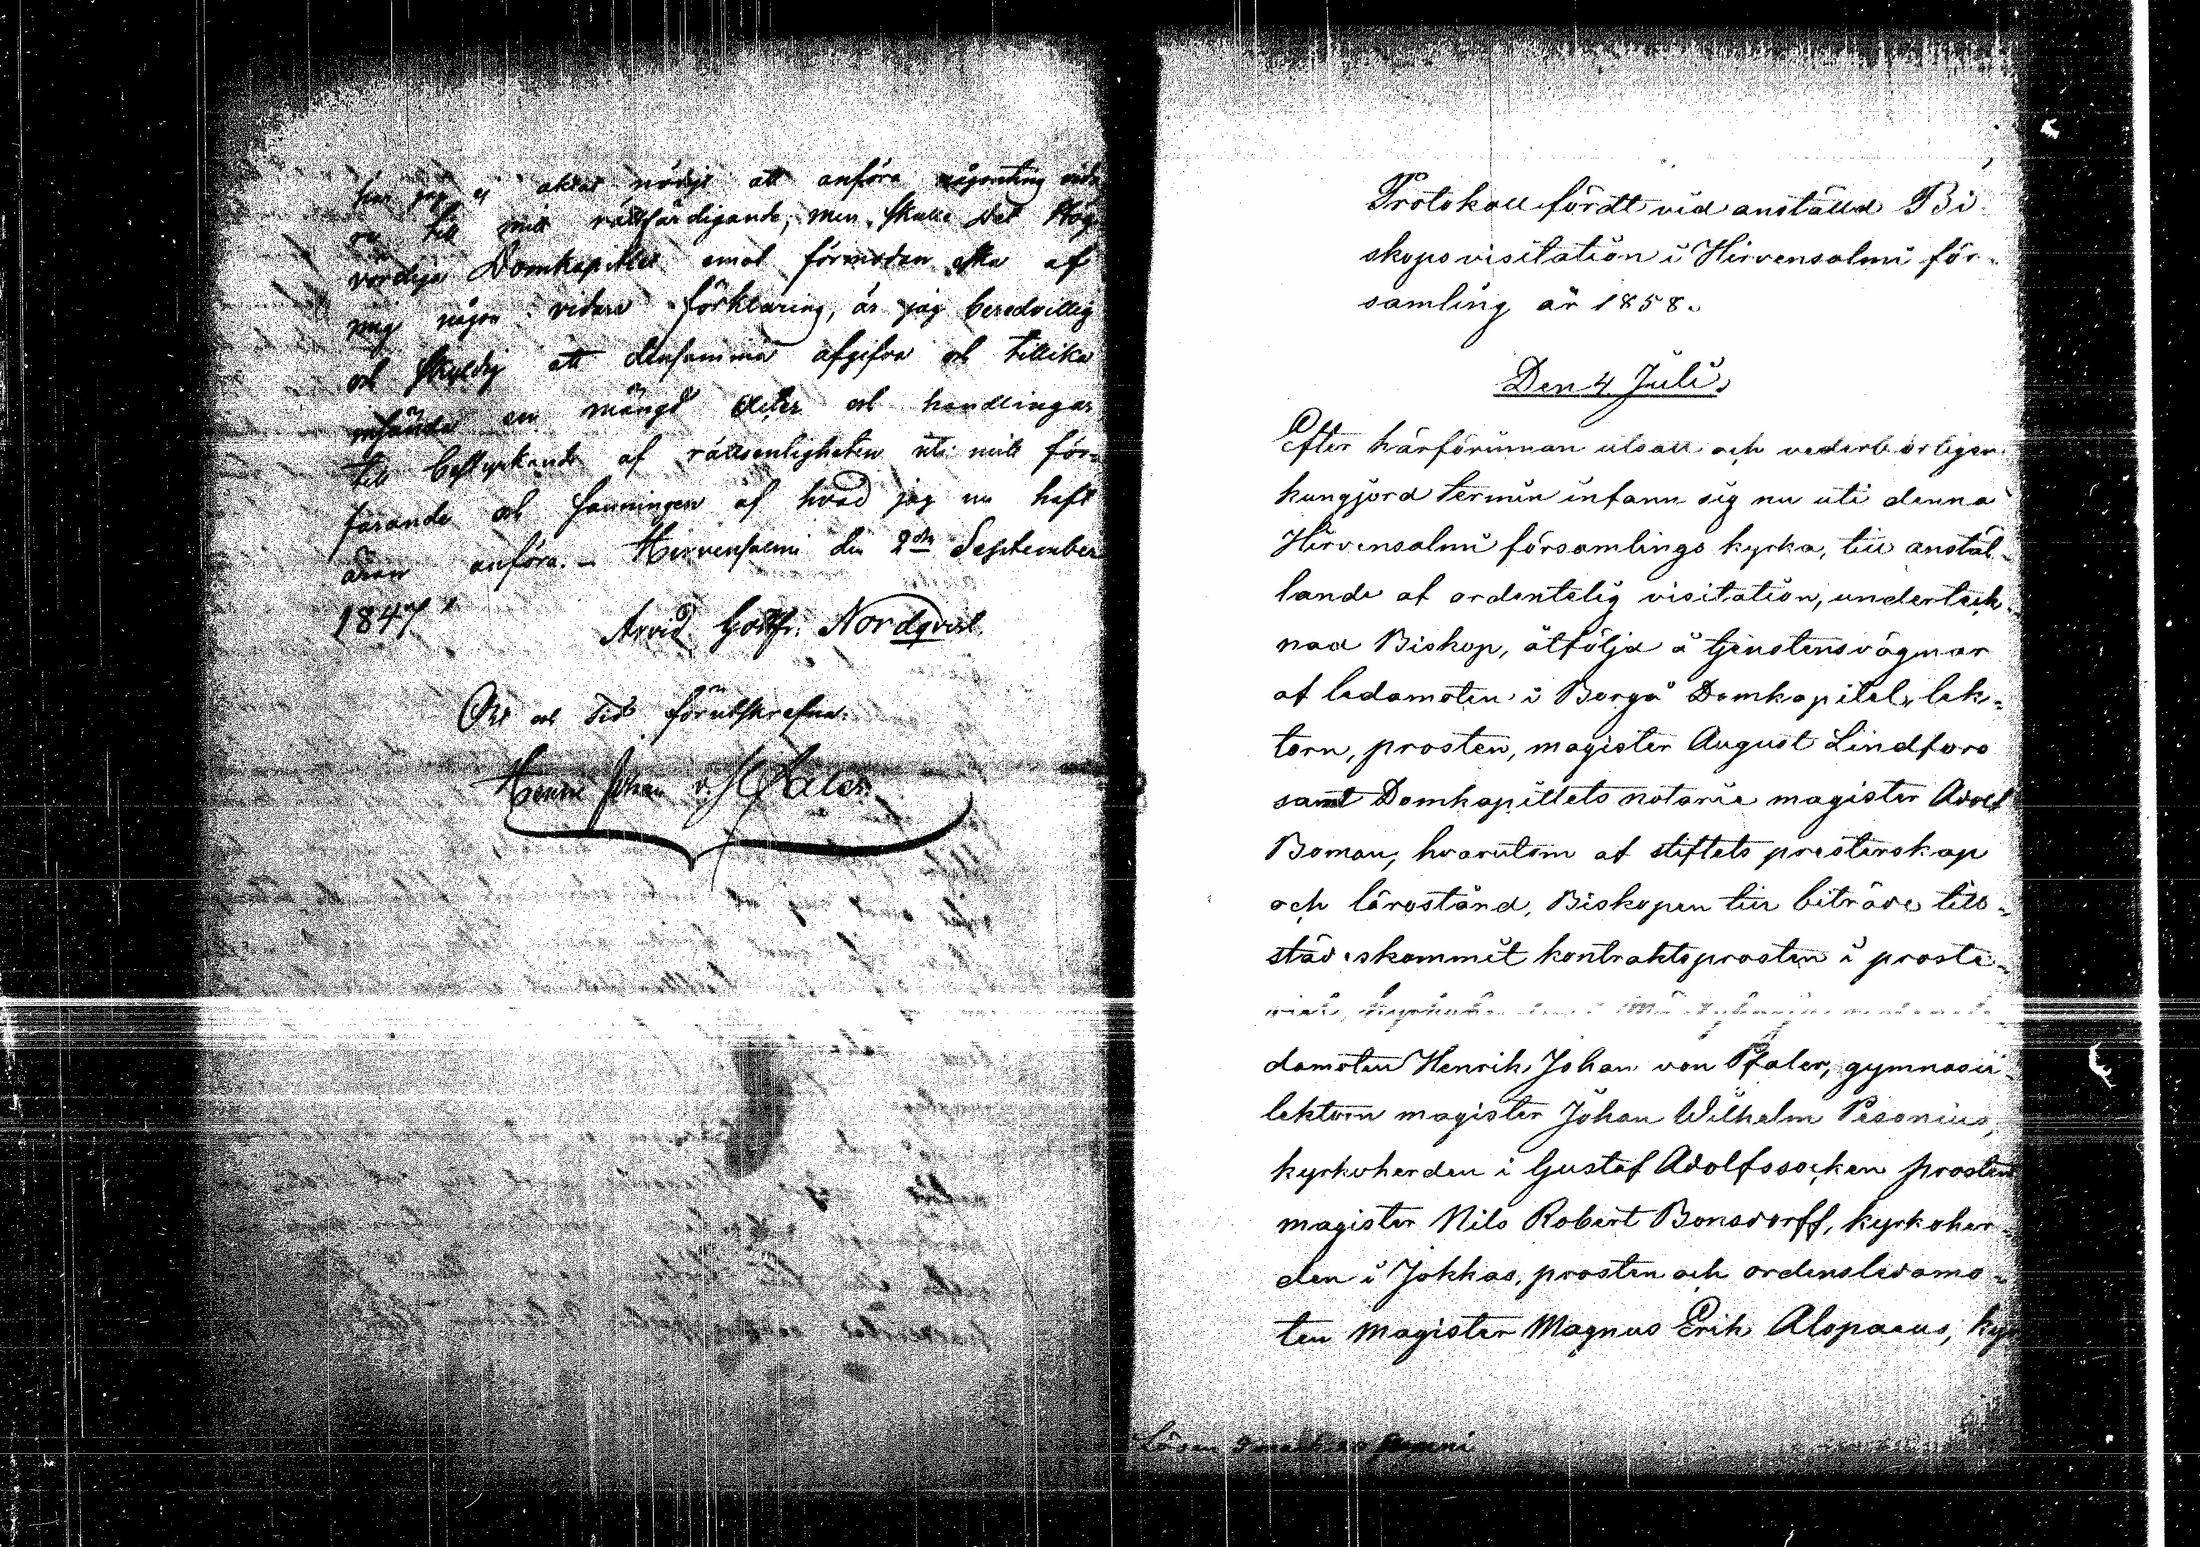 har jag ej aktat nödigt att anföra någonting vida
re till mitt rättfärdigande, men skulle det Hög
vördiga Domkapitlet emot förmodan äska af
mig någon vidare förklaring, är jag beredvillig
och skyldig att densamma afgifva och tillika
insända en mängd acter och handlingar
till bestyrkande af rättsenligheten uti mitt för-
farande och sanningen af hvad jag nu haft
äran anföra. – Hirvensalmi den 2dra September
1847
Arvid Gottfr. Nordqvist.
Ort och tid förutskrefna.
Henric Johan v. Pfaler
Protokoll fördt vid anställd Bi
skopsvisitation i Hirvensalmi för-
samling år 1858.
Den 4 Juli.
Efter härförinnan utsatt och vederbörligen
kungjord termin infann sig nu uti denna
Hirvensalmi församlings kyrka, till anstäl-
lande af ordentelig visitation, underteck-
nad Biskop, åtföljd å tjenstensvägnar
af ledamoten i Borgå Domkapitel, lek-
torn, prosten, magister August Lindfors
samt Domkapitlets notarie magister Adolf
Boman, hvarutom af stiftets presterskap
och lärostånd, Biskopen till biträde till-
städeskommit kontraktsprosten i proste-
damoten Henrik Johan von Pfaler, gymnasii
lektorn magister Johan Wilhelm Pesonius,
kyrkoherden i Gustaf Adolfssocken prosten
magister Nils Robert Bonsdorff, kyrkoher-
den i Jokkas, prosten och ordensledamo-
ten magister Magnus Erik Alopaeus, kyr
Lösen